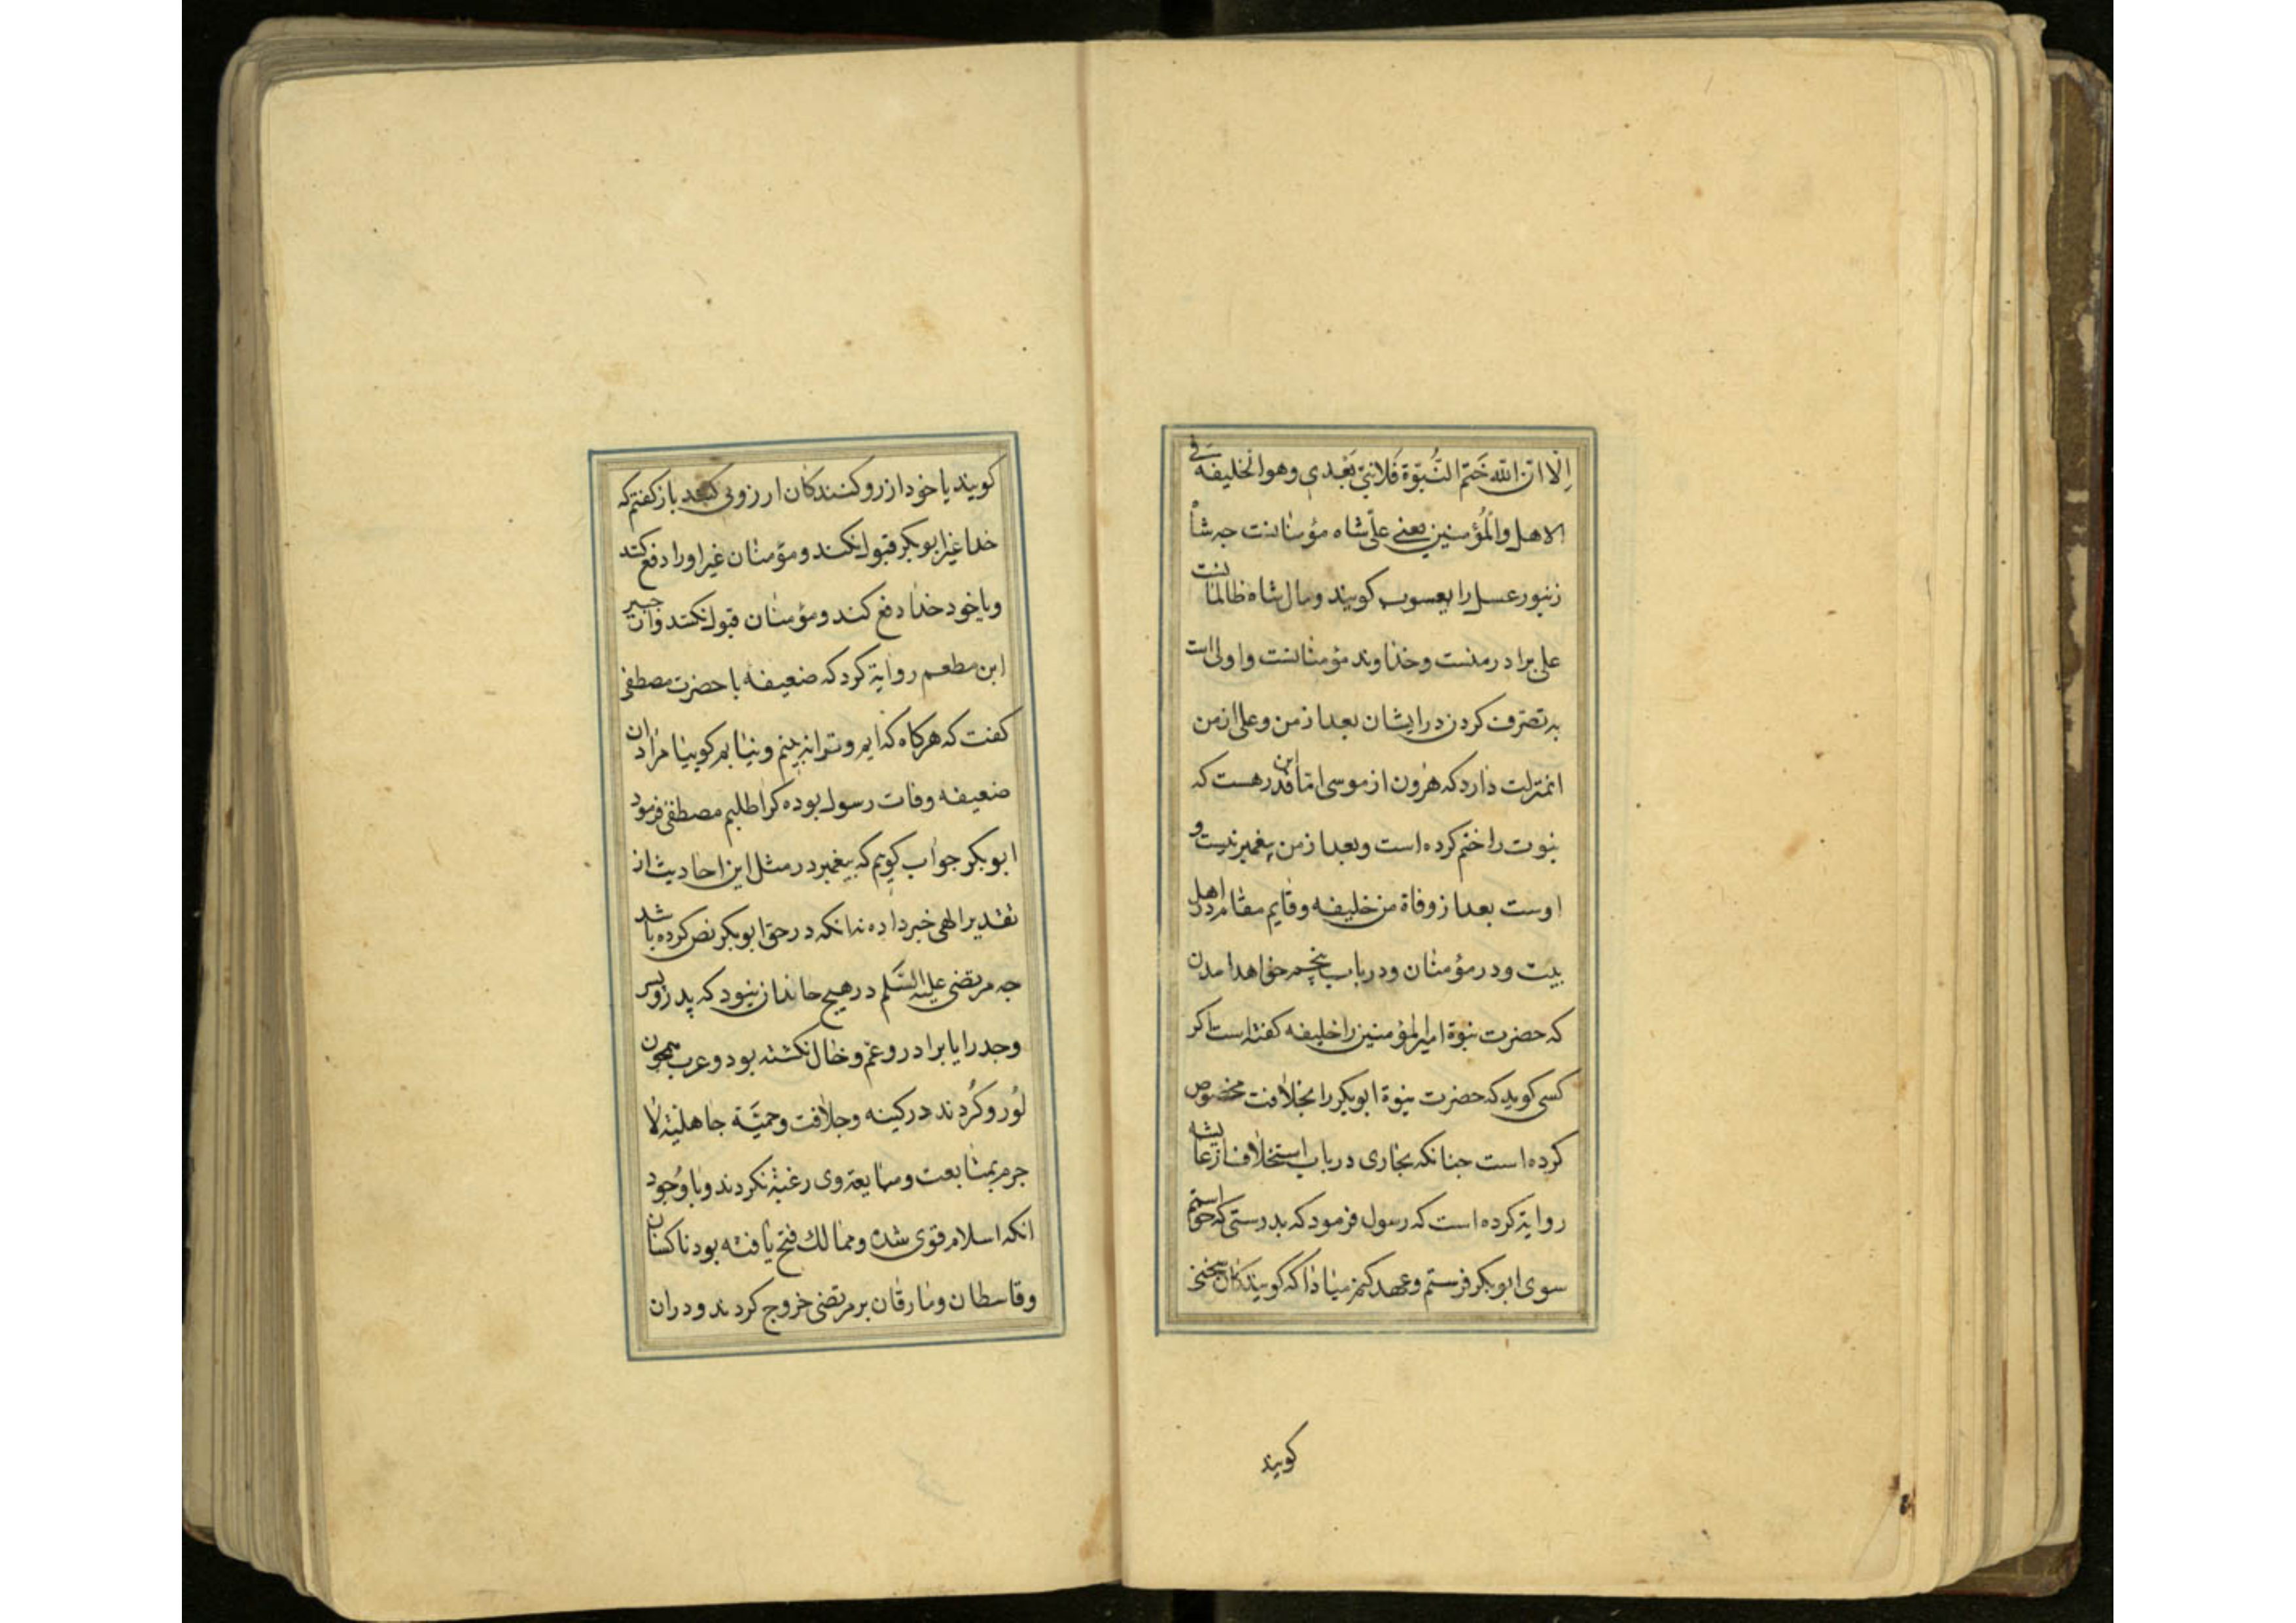 اِلّا انّ الله خَتَم النُّبُوّة فَلا نبیّ بَعْدی وهو الخلیفه فی
الاهل والمُؤمنین یعنی علی شاه مؤمنانست جه شاه
زنبور عسل را یعسوب کویند ومال شاه ظالمانست
علی برادر منست وخذاوند مؤمنانست واولی است
به تصرّف کردن در ایشان بعد از من وعلی از من
انمنزلت دارد که هرون از موسی اما این قدر هست که
نبوت را ختم کرده است وبعد از من پیغمبر نیست و
اوست بعد از وفاة من خلیفه وقایم مقام در اهل
بیت ودر مؤمنان ودر باب پنجم خواهد امدن
که حضرت نبوة امیرالمؤمنین را خلیفه کفته است اکر
کسی کوید که حضرت نبوة ابوبکر را بخلافت مخصوص
کرده است جنانکه بخاری در باب استخلاف از عایشه
روایة کرده است که رسول فرمود که بدرستی که خواستم
سوی ابوبکر فرستم وعهد کنم مباذا که کویندکان سخنی
کویند
کویند یا خود ارزو کنندکان ارزوی کنند باز کفتم که
خدا غیر ابوبکر قبول نکند ومؤمنان غیر او را دفع کنند
ویا خود خدا دفع کند ومؤمنان قبول نکنند وان جبیر
ابن مطعم روایة کرد که ضعیفه با حضرت مصطفی
کفت که هرکاه که ایم وترا نه بینم ونیابم کوییا مراد ان
ضعیفه وفات رسول بوده کرا طلبم مصطفی فرمود
ابوبکر جواب کویم که پیغمبر در مثل این احادیث از
تقدیر الهی خبر داده نه انکه در حق ابوبکر نص کرده باشد
جه مرتضی علیه السَّلم در هیج خاندان نبود که پدر وپسر
وجد را یا برادر وعم وخال نکشته بود وعرب همجون
لُور وکُردند در کینه وجلافت وحمیَّة جاهلیّة لا
جرم بمتابعت ومبایعة وی رغبة نکردند وبا وُجود
انکه اسلام قوی شده وممالک فتح یافته بود ناکسان
وقاسطان ومارقان بر مرتضی خروج کردند ودران